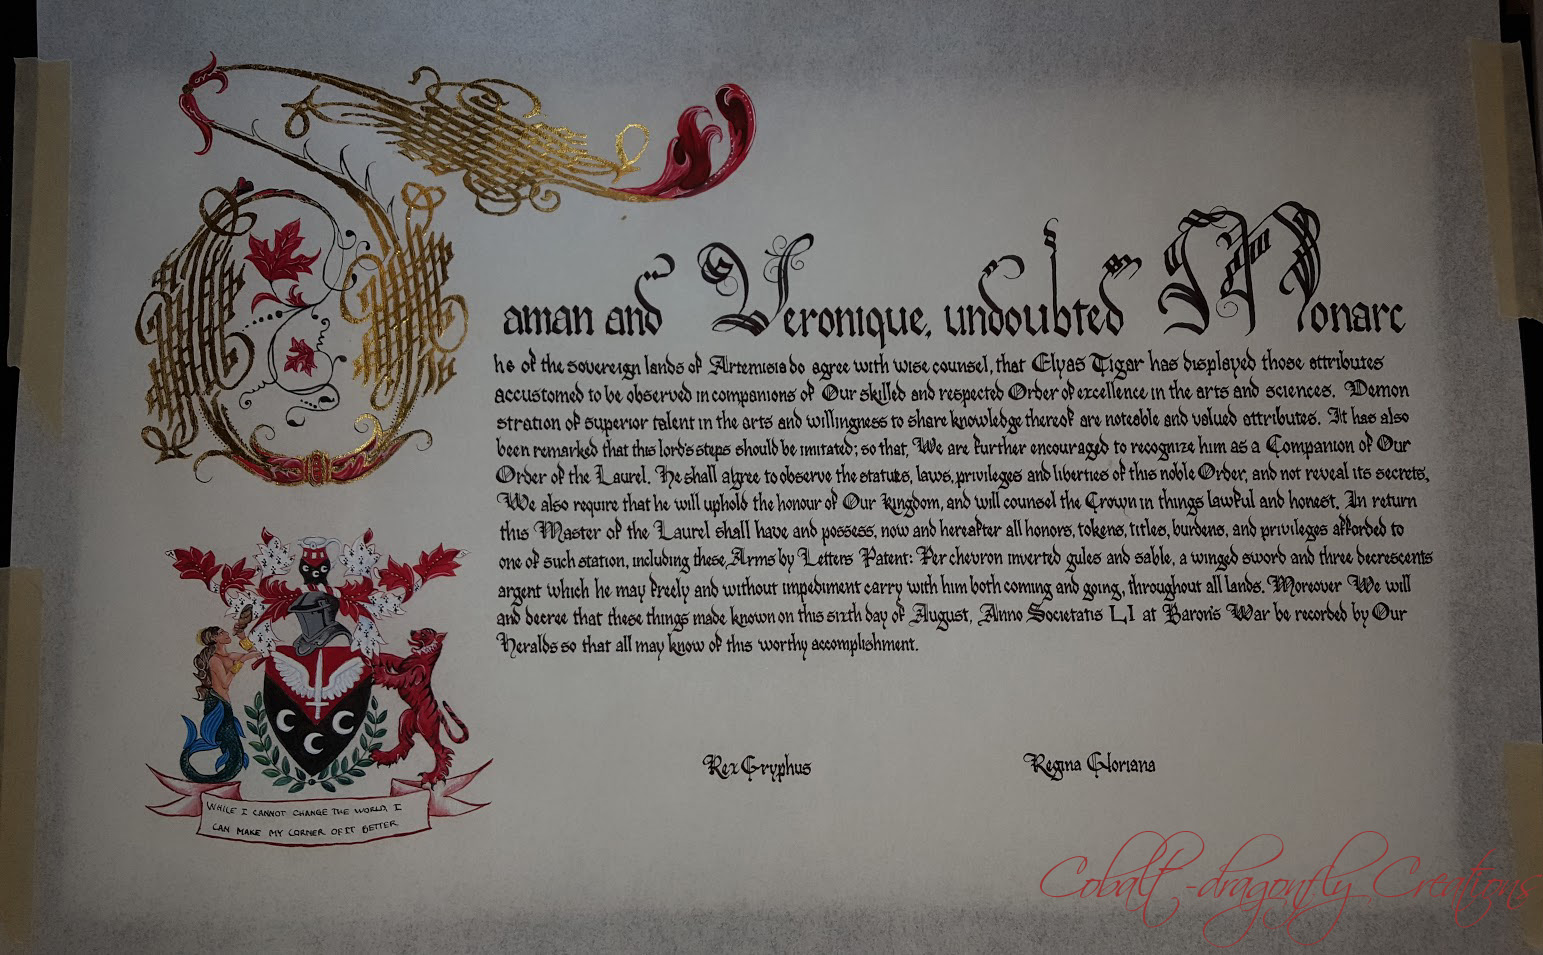 aman and Veronique, undoubted Monarc
hs of the sovereign lands of Artemisia do agree with wise counsel, that Elyas Tigar has displayed those attributes
accustomed to be observed in companions of Our skilled and respected Order of excellence in the arts and sciences. Demon
stration of superior talent in the arts and willingness to share knowledge thereof are noteable and valued attributes. It has also
been remarked that this lord's steps should be imitated; so that, We are further encouraged to recognize him as a Companion of Our
Order of the Laurel. He shall agree to observe the statutes, laws, privileges and liberties of this noble Order, and not reveal its secrets,
We also require that he will uphold the honour of Our Kingdom, and will counsel the Crown in things lawful and honest. In return
this Master of the Laurel shall have and possess, now and hereafter all honors, tokens, titles, burdens, and privileges afforded to
one of such station, including these, Arms by Letters Patent: Per chevron inverted gules and sable, a winged sword and three decrescents
argent which he may freely and without impediment carry with him both coming and going, throughout all lands. Moreover We will
and decree that these things made known on this sixth day of August, Anno Societatis LI at Baron's War be recorded by Our
Heralds so that all may know of this worthy accomplishment.
Rex Gryphus
Regina Gloriana
WHILE I CANNOT CHANGE THE WORLD, I
CAN MAKE MY CORNER OF IT BETTER
Cobalt-dragonfly Creations